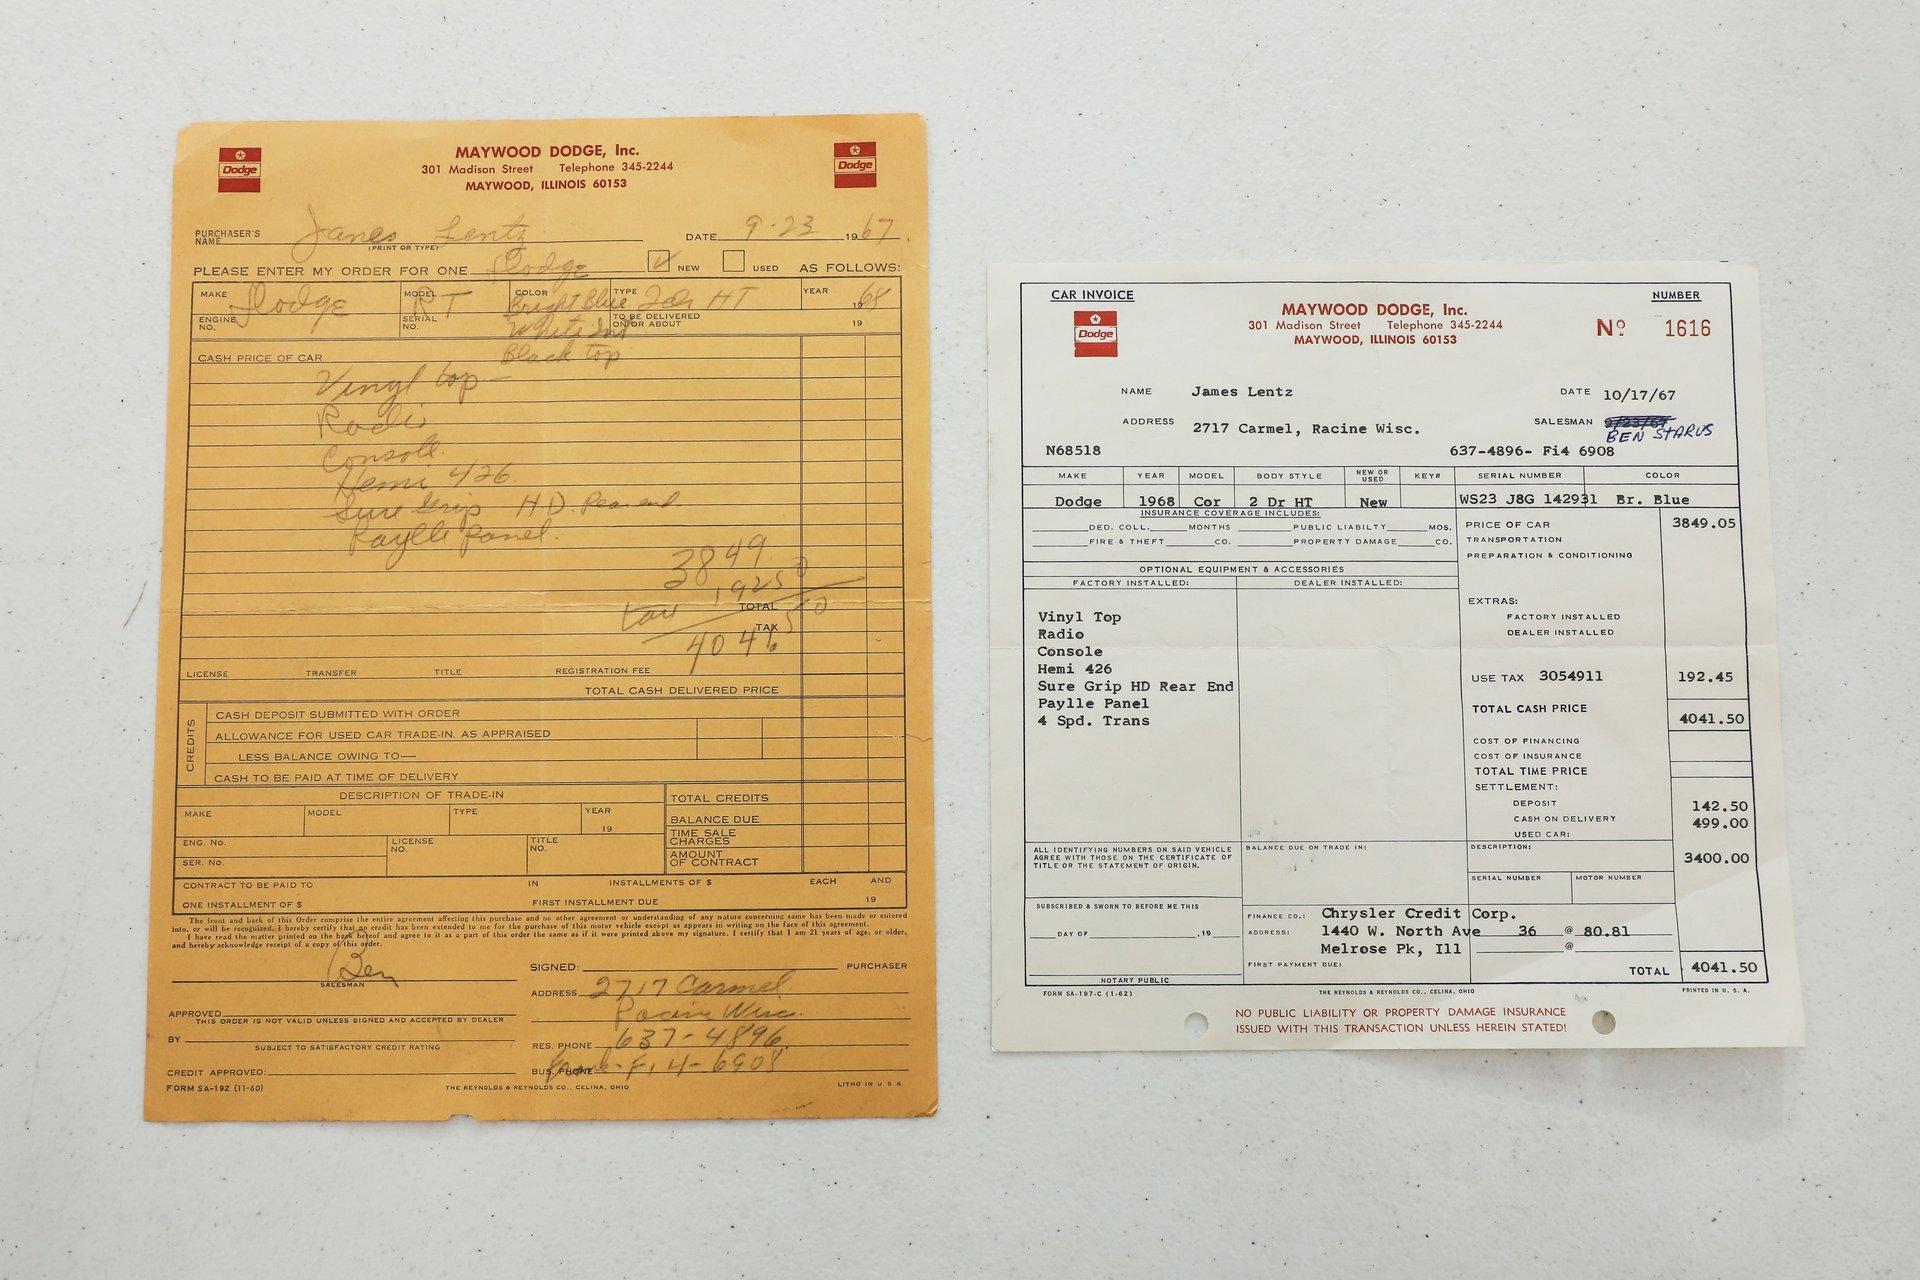 MAYWOOD DODGE, Inc.
301 Madison Street Telephone 345-2244
MAYWOOD, ILLINOIS 60153
Dodge
Dodge
PURCHASER'S NAME James Lentz DATE 9-23 1967
(PRINT OR TYPE)
PLEASE ENTER MY ORDER FOR ONE Dodge NEW USED AS FOLLOWS:
MAKE Dodge MODEL RT COLOR Bright Blue TYPE 2dr HT YEAR 1968
ENGINE NO. SERIAL NO. White Int TO BE DELIVERED ON OR ABOUT 19
CASH PRICE OF CAR Black top
Vinyl top
Radio
Console
Hemi 426
Sure Grip H.D. Rear end
Raylle Panel.
3849
192 50
TOTAL
tax
TAX
4041 50
LICENSE TRANSFER TITLE REGISTRATION FEE
TOTAL CASH DELIVERED PRICE
CREDITS
CASH DEPOSIT SUBMITTED WITH ORDER
ALLOWANCE FOR USED CAR TRADE-IN, AS APPRAISED
LESS BALANCE OWING TO—
CASH TO BE PAID AT TIME OF DELIVERY
DESCRIPTION OF TRADE-IN TOTAL CREDITS
MAKE MODEL TYPE YEAR 19 BALANCE DUE
ENG. No. LICENSE NO. TITLE NO. TIME SALE CHARGES
SER. No. AMOUNT OF CONTRACT
CONTRACT TO BE PAID TO IN INSTALLMENTS OF $ EACH AND
ONE INSTALLMENT OF $ FIRST INSTALLMENT DUE 19
The front and back of this Order comprise the entire agreement affecting this purchase and no other agreement or understanding of any nature concerning same has been made or entered
into, or will be recognized. I hereby certify that no credit has been extended to me for the purchase of this motor vehicle except as appears in writing on the face of this agreement.
I have read the matter printed on the back hereof and agree to it as a part of this order the same as if it were printed above my signature. I certify that I am 21 years of age, or older,
and hereby acknowledge receipt of a copy of this order.
Ben
SALESMAN
SIGNED: PURCHASER
ADDRESS 2717 Carmel
Racine Wisc.
APPROVED
THIS ORDER IS NOT VALID UNLESS SIGNED AND ACCEPTED BY DEALER
BY
SUBJECT TO SATISFACTORY CREDIT RATING
RES. PHONE 637-4896
BUS. PHONE Fi 4-6908
CREDIT APPROVED:
FORM SA-192 (11-60) THE REYNOLDS & REYNOLDS CO., CELINA, OHIO LITHO IN U S A
CAR INVOICE
NUMBER
MAYWOOD DODGE, Inc.
301 Madison Street Telephone 345-2244
MAYWOOD, ILLINOIS 60153
Dodge
Nº 1616
NAME James Lentz DATE 10/17/67
ADDRESS 2717 Carmel, Racine Wisc. SALESMAN BEN STARUS
N68518 637-4896- Fi4 6908
MAKE YEAR MODEL BODY STYLE NEW OR USED KEY# SERIAL NUMBER COLOR
Dodge 1968 Cor 2 Dr HT New WS23 J8G 142931 Br. Blue
INSURANCE COVERAGE INCLUDES: PRICE OF CAR 3849.05
DED. COLL. MONTHS PUBLIC LIABILTY MOS. TRANSPORTATION
FIRE & THEFT CO. PROPERTY DAMAGE CO. PREPARATION & CONDITIONING
OPTIONAL EQUIPMENT & ACCESSORIES
FACTORY INSTALLED: DEALER INSTALLED:
EXTRAS:
Vinyl Top FACTORY INSTALLED
Radio DEALER INSTALLED
Console
Hemi 426 USE TAX 3054911 192.45
Sure Grip HD Rear End
Paylle Panel TOTAL CASH PRICE
4 Spd. Trans 4041.50
COST OF FINANCING
COST OF INSURANCE
TOTAL TIME PRICE
SETTLEMENT:
DEPOSIT 142.50
CASH ON DELIVERY 499.00
USED CAR:
ALL IDENTIFYING NUMBERS ON SAID VEHICLE AGREE WITH THOSE ON THE CERTIFICATE OF TITLE OR THE STATEMENT OF ORIGIN.
BALANCE DUE ON TRADE IN: DESCRIPTION: 3400.00
SERIAL NUMBER MOTOR NUMBER
SUBSCRIBED & SWORN TO BEFORE ME THIS
FINANCE CO.: Chrysler Credit Corp.
DAY OF , 19 ADDRESS: 1440 W. North Ave 36 @ 80.81
Melrose Pk, Ill @
FIRST PAYMENT DUE: TOTAL 4041.50
NOTARY PUBLIC
FORM SA-197-C (1-62) THE REYNOLDS & REYNOLDS CO., CELINA, OHIO PRINTED IN U. S. A.
NO PUBLIC LIABILITY OR PROPERTY DAMAGE INSURANCE
ISSUED WITH THIS TRANSACTION UNLESS HEREIN STATED!